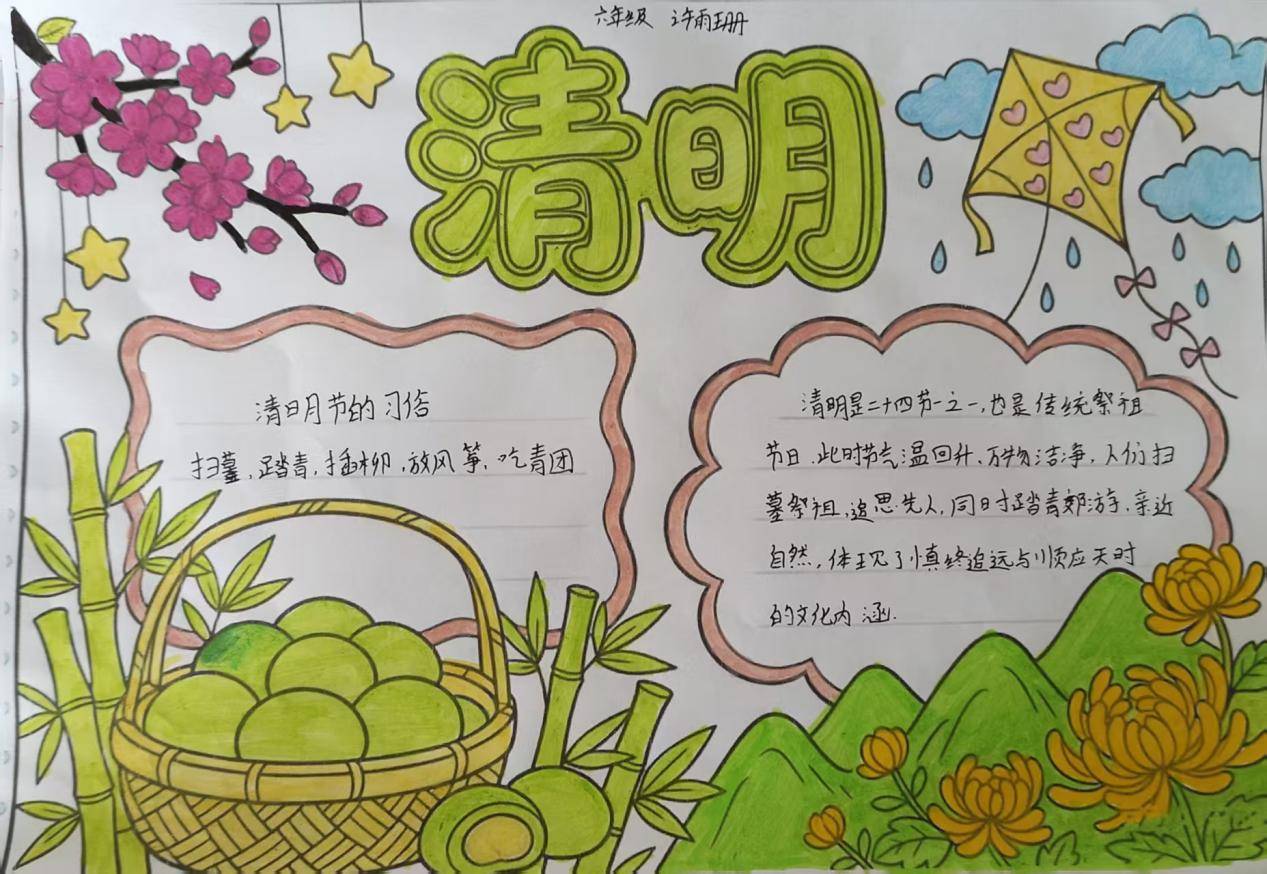 六年级 许雨珊
清明
清明节的习俗
扫墓,踏青,插柳,放风筝,吃青团
清明是二十四节之一,也是传统祭祖
节日.此时节气温回升、万物洁净,人们扫
墓祭祖,追思先人,同时踏青郊游,亲近
自然,体现了慎终追远与顺应天时
的文化内涵.